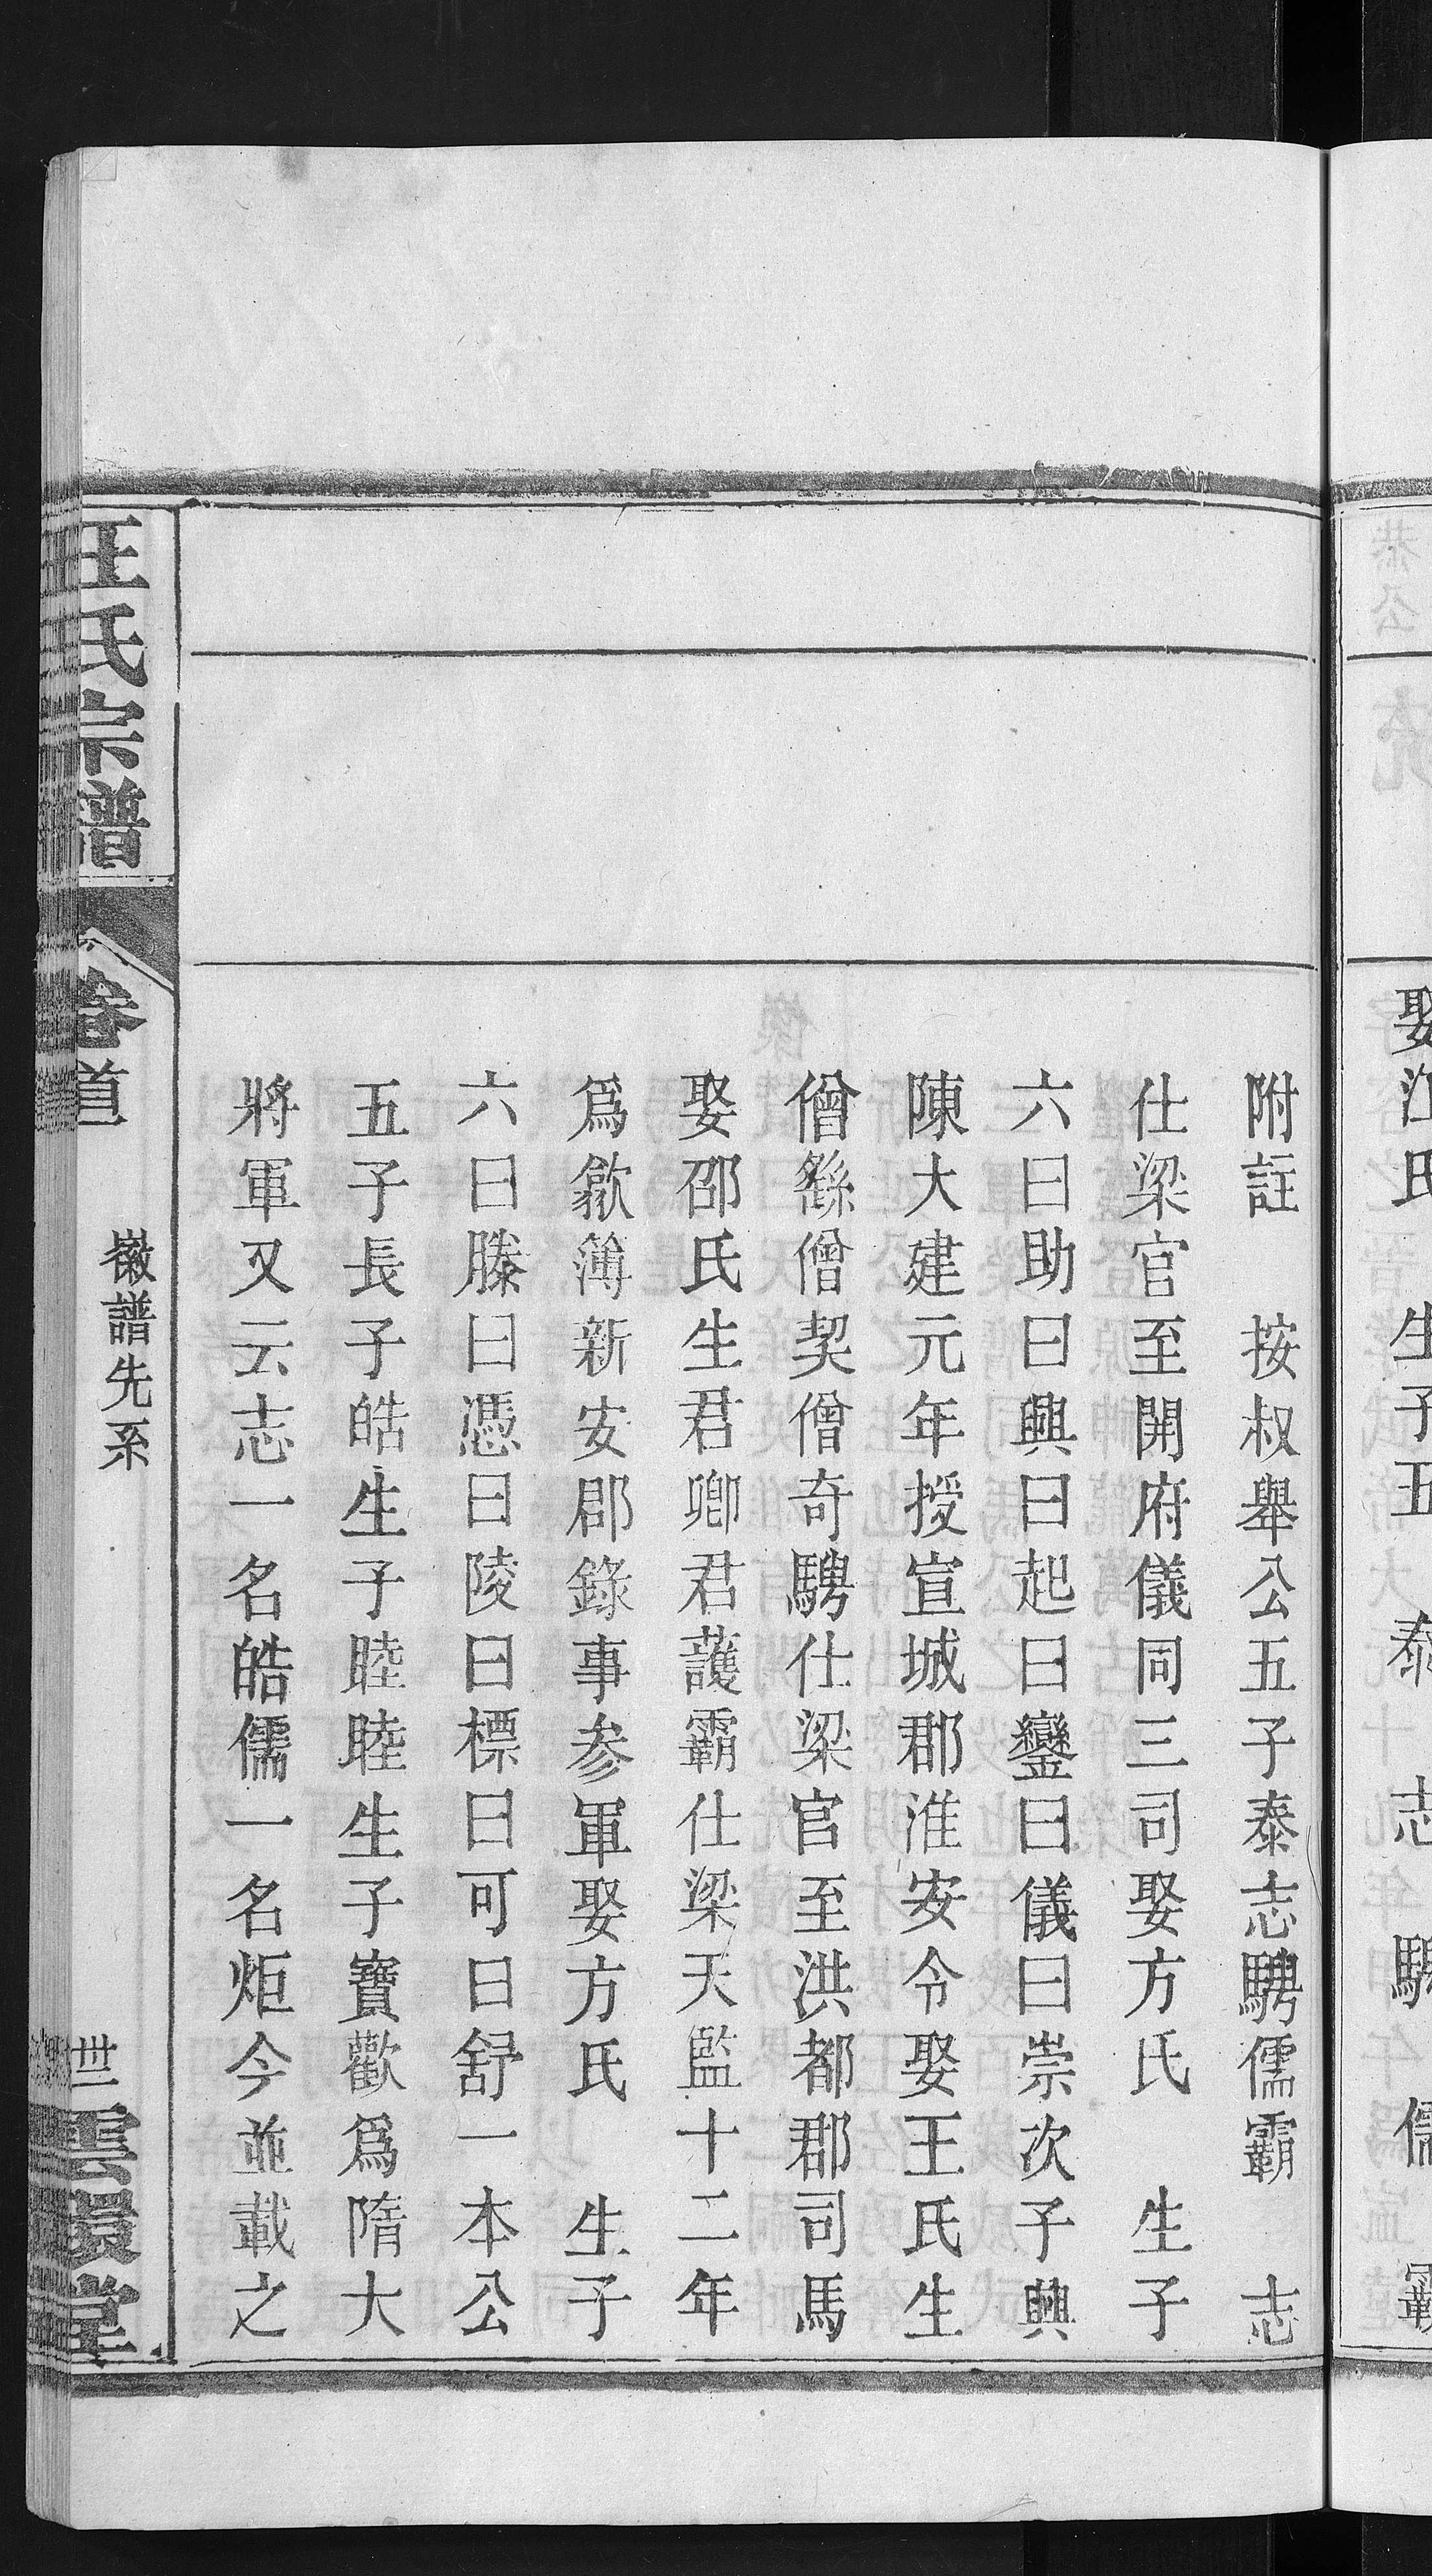 娶江氏 生子五 泰 志 騁 儒 霸
附註 按叔舉公五子泰志騁儒霸 志
仕梁官至開府儀同三司娶方氏 生子
六曰助曰興曰起曰鑾曰儀曰崇次子興
陳大建元年授宣城郡淮安令娶王氏生
僧繇僧契僧奇騁仕梁官至洪都郡司馬
娶邵氏生君卿君護霸仕梁天監十二年
爲歙簿新安郡錄事參軍娶方氏 生子
六曰滕曰憑曰陵曰標曰可曰舒一本公
五子長子皓生子睦睦生子寶歡爲隋大
將軍又云志一名皓儒一名炬今並載之
氏宗譜
卷首
徽譜先系
卅二
堂